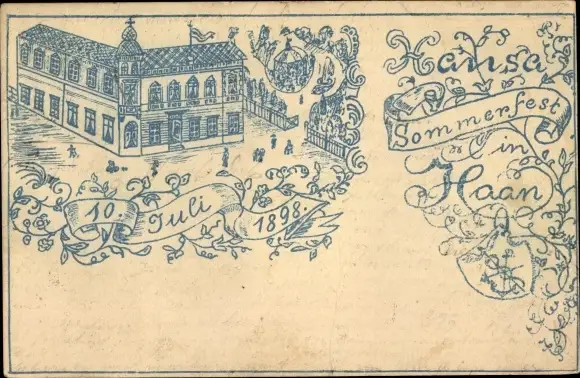 Hansa
Sommerfest
in
Haan
10. Juli 1898.